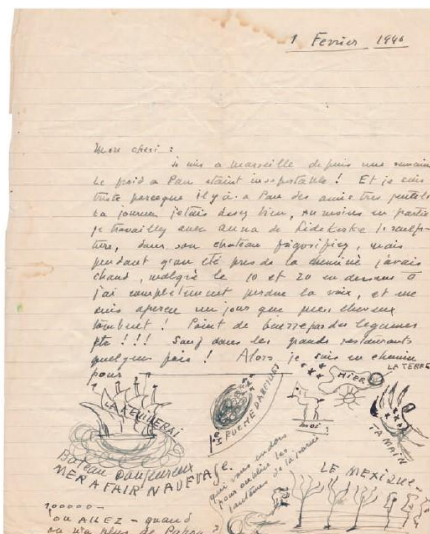 1 Fevrier 1940
Mon cheri :
Je suis a marseille depuis une semaine
Le froid a Pau etaint insuportable ! Et je suis
triste parceque il y a : a Pau des amies tres gentils
La journee j'etais assez bien, au moins en partie
je travailles avec Anna de la sculp-
ture, dans son chateau frigorifies, mais
pendant q'on été pres de la cheminé j'avais
chaud, malgre le 10 et 20 en dessous 0
j'ai completement perdue la voix, et me
suis aperçu un jour que mes cheveux
tombuet ! Point de beurre pas des legumes
pte !!! Sauf dans les grands restaurants
quelques fois ! Alors je suis en chemin
pour
LA TERRE
HIER
LA REVIDERAI
1ER POCHE D'ARGILES
moi :
TA MAIN
Bateau Dangereux
MER A FAIR NAUFRAGE.
pour oublier les
LE MEXIQUE -
100000 -
ou ALLEZ - quand
on n'a plus de Papou